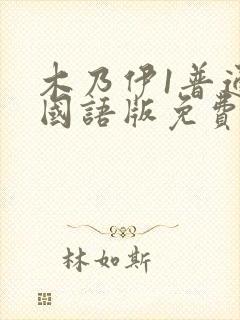 木乃伊1普通
國語版免費
林如斯